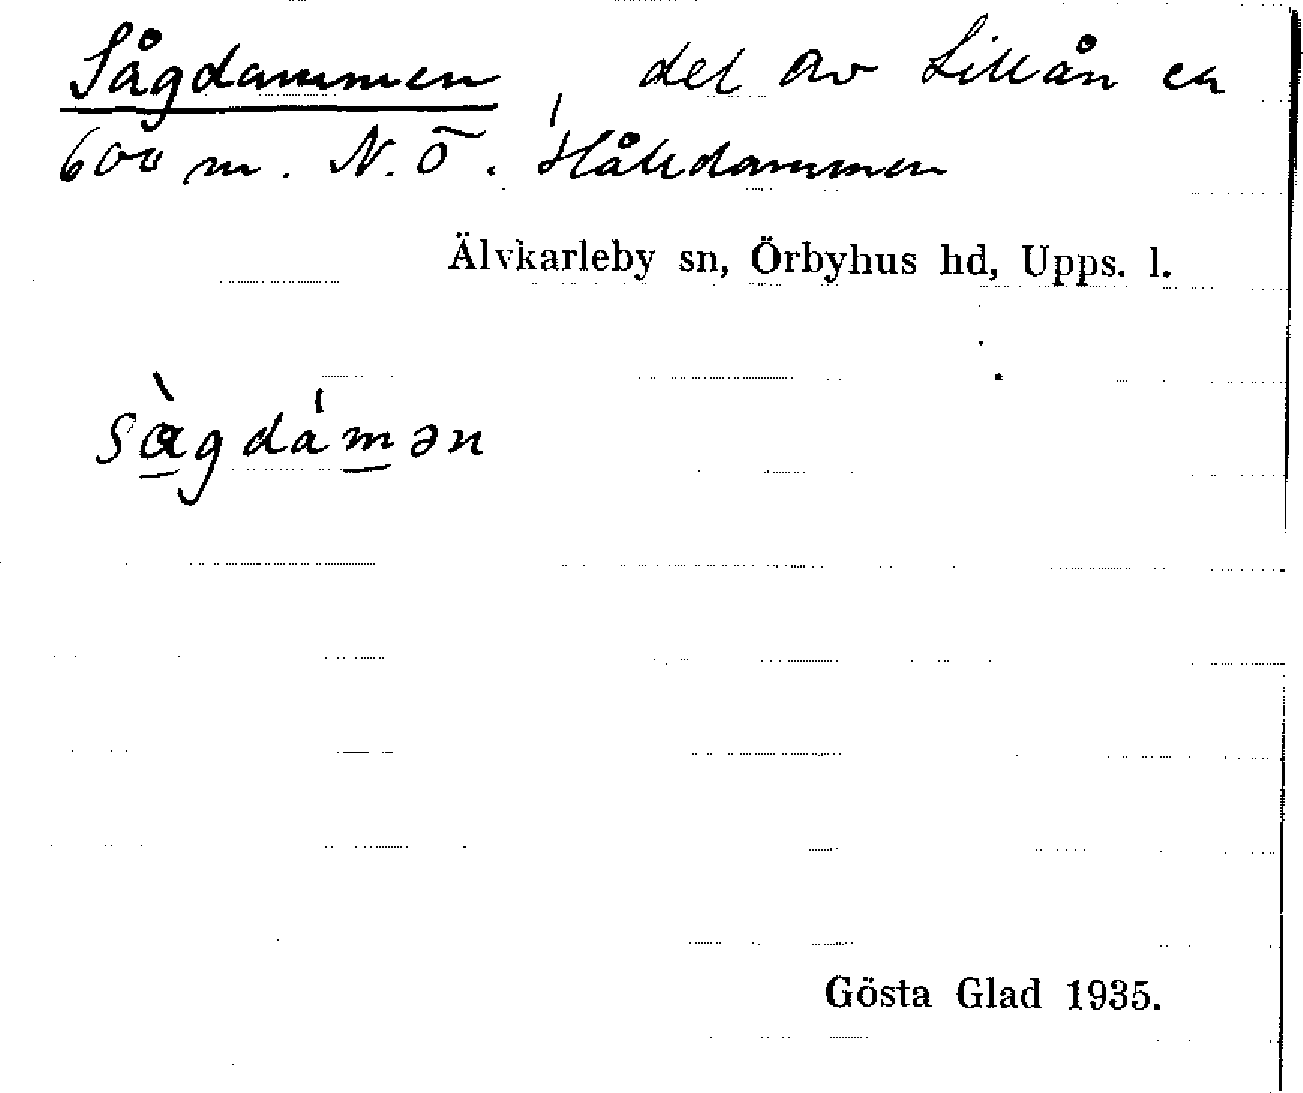 Sågdammen, del av Lillån ca
600 m. N. Ö. Hålldammen
Älvkarleby sn, Örbyhus hd, Upps. l.
sàgdámən
Gösta Glad 1935.